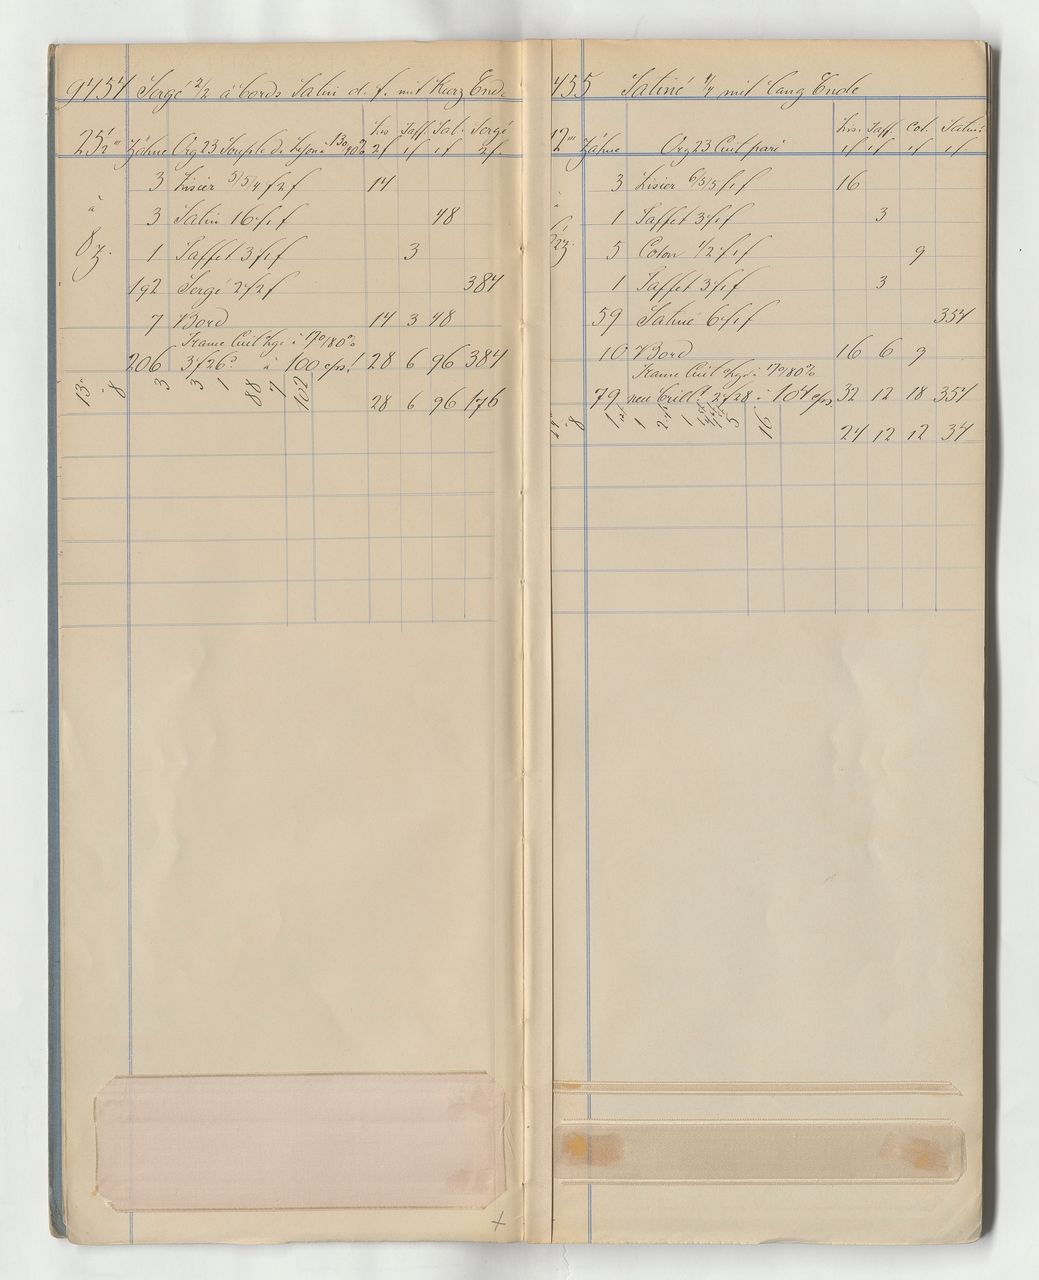 9454 Sergé 2/2 à bords Satin d. f. mit Kurz Ende
Lis. Taff. Sat. Sergé
25½''' Zähne Org 23 Souple de Lyon à 130/140% 2f 1f 1f 2f.
3 Lisier 5/5/4 f 2 f 14
à
3 Satin 16 f 1 f 48
8
z. 1 Taffet 3 f 1 f 3
192 Sergé 2 f 2 f 384
7 Bord 14 3 48
Trame Cuit à 170/180%
206 3 f 26 à 100 28 6 96 384
13 8 3 3 1 88 7 102
28 6 96 176
455 Satiné 1/4 mit lang Ende
Lis. Taff. Cot. Satiné
12''' Zähne Org 23 Cuit pari 1f 1f 1f 1f
3 Lisier 6/5/5 f 1 f 16
1 Taffet 3 f 1 f 3
5 Coton 1/2 f 1 f 9
1 Taffet 3 f 1 f 3
59 Satiné 6 f 1 f 354
10 Bord 16 6 9
Trame Cuit à 170/180%
79 2 f 28 à 104 32 12 18 354
8 1 1 1 5 16
24 12 12 34